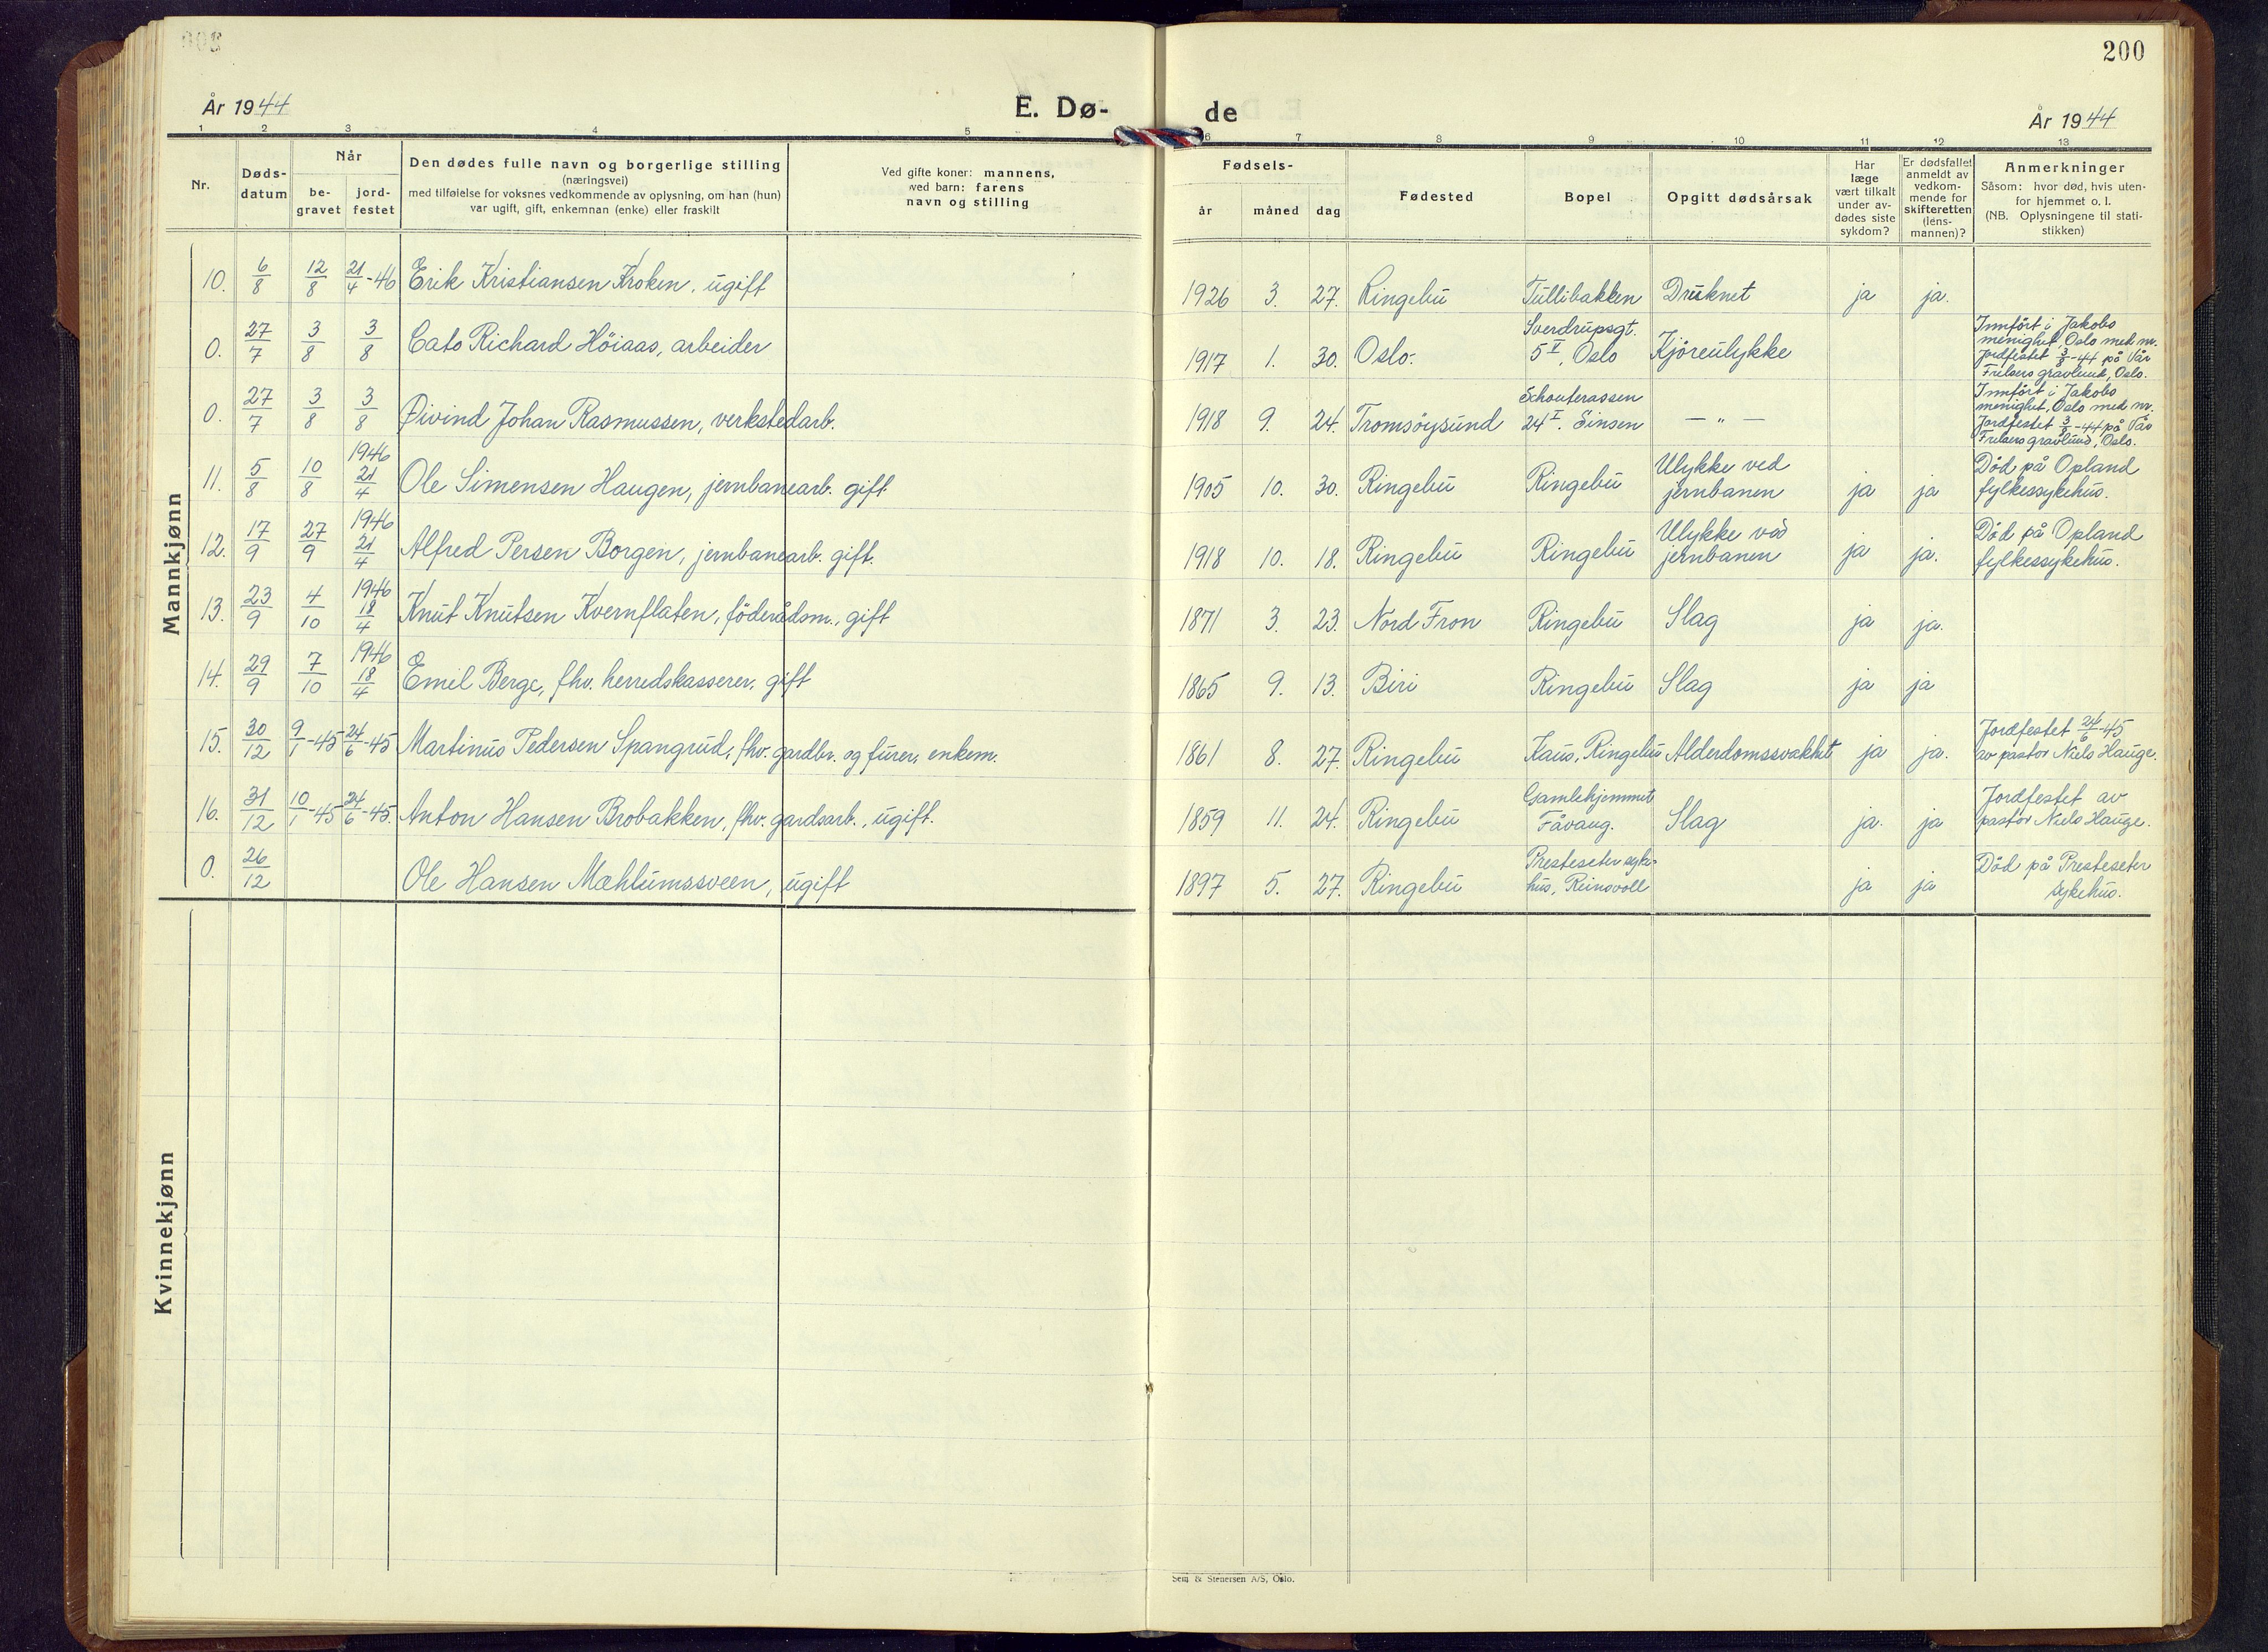 200
År 1944
E. Dø-
de
År 1944
1 2 3 4 5 6 7 8 9 10 11 12 13
Nr.
Døds-
datum
Når
be-
gravet
jord-
festet
Den dødes fulle navn og borgerlige stilling
(næringsvei)
med tilføielse for voksnes vedkommende av oplysning, om han (hun)
var ugift, gift, enkemnan (enke) eller fraskilt
Ved gifte koner: mannens,
ved barn: farens
navn og stilling
Fødsels-
år måned dag
Fødested
Bopel
Opgitt dødsårsak
Har
læge
vært tilkalt
under av-
dødes siste
sykdom?
Er dødsfallet
anmeldt av
vedkom-
mende for
skifteretten
(lens-
mannen)?
Anmerkninger
Såsom: hvor død, hvis uten-
for hjemmet o. l.
(NB. Oplysningene til stati-
stikken)
Mannkjønn
10. 6/8 12/8 21/4-46 Erik Kristiansen Kroken, ugift 1926 3. 27. Ringebu Tullibakken Druknet ja ja.
0. 27/7 3/8 3/8 Cato Richard Höiaas, arbeider 1917 1. 30. Oslo. Sverdrupsgt.
5 V, Oslo Kjöreulykke
Innfört i Jakobs
menighet, Oslo med nr.
Jordfestet 3/8-44 på Vår
Frelsers gravlund, Oslo.
0. 27/7 3/8 3/8 Øivind Johan Rasmussen, verkstedarb. 1918 9. 24. Tromsöysund Schouterassen
24 I. Sinsen — " —
Innfört i Jakobs
menighet, Oslo med nr.
Jordfestet 3/8-44 på Vår
Frelsers gravlund, Oslo.
11. 5/8 10/8 1946 21/4 Ole Simensen Haugen, jernbanearb. gift 1905 10. 30. Ringebu Ringebu Ulykke ved
jernbanen ja ja Död på Opland
fylkessykehus.
12. 17/9 27/9 1946 21/4 Alfred Persen Borgen, jernbanearb. gift. 1918 10. 18. Ringebu Ringebu Ulykke ved
jernbanen ja ja. Död på Opland
fylkessykehus.
13. 23/9 4/10 1946 18/4 Knut Knutsen Kvernflaten, föderådsm., gift 1871 3. 23. Nord Fron Ringebu Slag ja ja.
14. 29/9 7/10 1946 18/4 Emil Berge, fhv. herredskasserer, gift 1865 9. 13. Biri Ringebu Slag ja ja
15. 30/12 9/1-45 24/6-45 Martinus Pedersen Spangrud, fhv. gardbr. og furer, enkem. 1861 8. 27. Ringebu Kaus, Ringebu Alderdomssvakhet ja ja. Jordfestet 24/6-45
av pastor Niels Hauge.
16. 31/12 10/1-45 24/6-45. Anton Hansen Brobakken, fhv. gardsarb., ugift. 1859 11. 24. Ringebu Gamlehjemmet
Fåvang. Slag ja. ja Jordfestet av
pastor Niels Hauge.
0. 26/12 Ole Hansen Mæhlumssveen, ugift 1897 5. 27. Ringebu Presteseter syke-
hus, Reinsvoll ja ja Död på Presteseter
sykehus.
Kvinnekjønn
Sem & Stenersen A/S, Oslo.